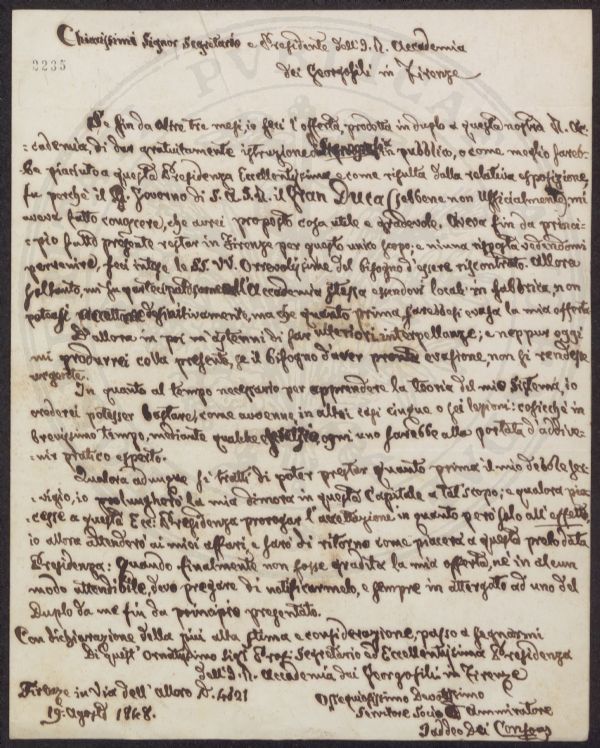 Chiarissimi Signor Segretario e Presidente dell'I. R. Accademia
dei Georgofili in Firenze
2235
Se fin da oltre tre mesi, io feci l'offerta, prodotta in duplo a questa nostra R. Ac:
:cademia, di dar gratuitamente istruzione in pubblico, o come meglio fareb:
be piaciuto a questa Presidenza Eccellentissima e come risulta dalla relativa esposizione,
fu perchè il Governo di S. A. I. R. il Gran Duca (sebbene non Ufficialmente) mi
aveva fatto conoscere, che avrei proposto cosa utile e gradevole. Aveva fin da princi:
:pio fatto presente restar in Firenze per questo unico scopo; e niuna risposta vedendomi
pervenire, feci intese le SS. VV. Orrevolissime del bisogno d'essere riscontrato. Allora
soltanto, mi fu partecipato dall'Accademia stessa essendovi locali in fabbrica, non
potersi accettare definitivamente, ma che quanto prima, sarebbesi evasa la mia offerta
D'allora in poi m'astenni di far ulteriori interpellanze; e neppur oggi
mi produrrei colla presente, se il bisogno d'aver pronta evasione, non si rendesse
urgente.
In quanto al tempo necessario per apprendere la teoria del mio Sistema, io
crederei potesser bastare, come avvenne in altri casi cinque o sei lezioni: cosicchè in
brevissimo tempo, mediante qualche esercizio, ogni uno sarebbe alla portata d'addive:
:nir pratico esperto.
Qualora adunque si tratti di poter prestar quanto prima il mio debole ser:
:vigio, io prolungherò la mia dimora in questa Capitale a tal scopo; e qualora pia:
cesse a questa Ecc: Presidenza prorogar l'accettazione in quanto però solo all'effetto,
io allora attenderò ai miei affari, e farò di ritorno come piacerà a questa prelodata
Presidenza: Quando finalmente non fosse gradita la mia offerta, nè in alcun
modo attendibile, devo pregare di notificarmelo, e sempre in attergato ad uno del
Duplo da me fin da principio presentato.
Con dichiarazione della più alta stima e considerazione, passo a segnarmi
Di quest'Ornatissimo Sigr Prof: Segretario ed Eccellentissima Presidenza
dell'I. R. Accademia dei Georgofili in Firenze
Firenze in Via dell'alloro N. 4821
19. Agosto 1848.
Ossequiosissimo Devotissimo
Servitore Socio Ammiratore
Taddeo Dei Consoni